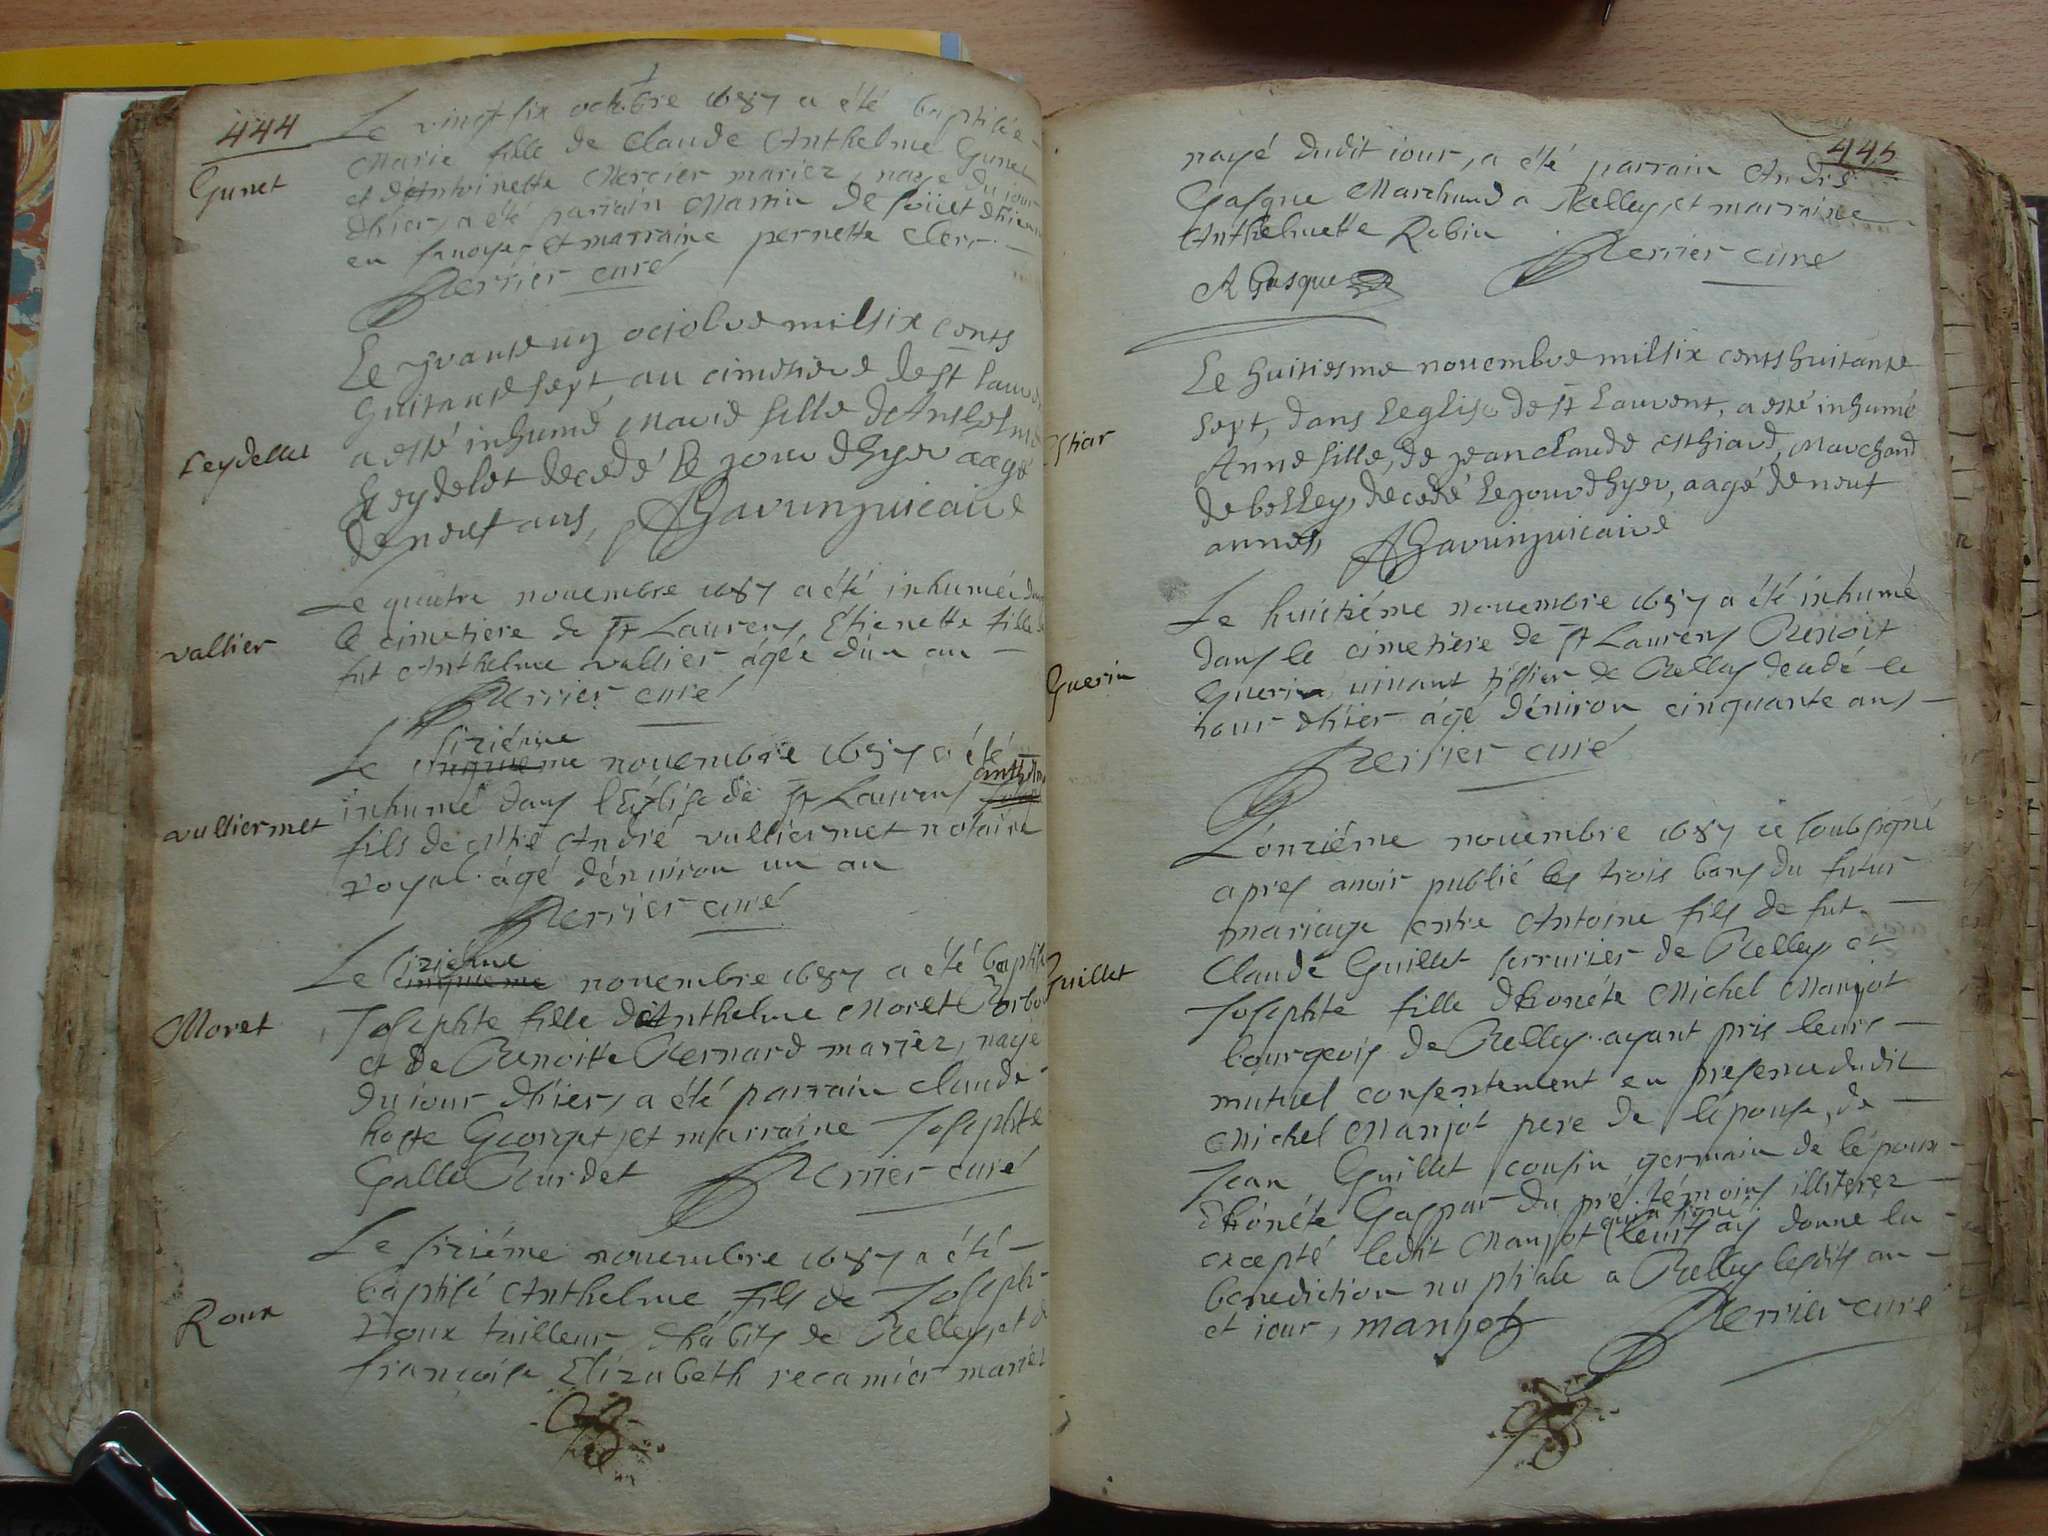 444
Gunet
Le vingt six octobre 1687 a été baptisée
Marie fille de Claude Anthelme Gunet
et d'Antoinette Mercier mariez, naye du jour
d'hier, a été parrain Martin de
en savoye, et marraine pernette Clerc
Perrier curé
Leydellet
Le trante ung octobre mil six cents
huitante sept, au cimetiere de St Laurent
a esté inhumé Marie fille de Anthelme
Leydelet decedé le jour dhyer aagé
de neuf ans, vicaire
vallier
Le quatre novembre 1687 a été inhumée dans
le cimetiere de St Laurens Etienette fille de
fut Anthelme vallier agée d'un an
Perrier curé
vulliermet
siziéme
Le cinquieme novembre 1687 a été
anthelme
inhumé dans l'Eglise de St Laurens
fils de Mtre André vulliermet notaire
royal âgé d'environ un an
Perrier curé
Moret
siziéme
Le cinquieme novembre 1687 a été baptisé
Josephte fille d'Anthelme Moret
et de Benoitte Bernard mariez, naye
du iour d'hier, a été parrain Claude
hoste Georget, et marraine Josephte
Galle Bourdet Perrier curé
Roux
Le siziéme novembre 1687 a été
baptisé Anthelme fils de Joseph
Roux tailleur d'habits de Belley, et de
françoise Elizabeth recamier mariez
445
nayé dudit iour, a été parrain André
Gasque Marchand a Belley, et marraine
Anthelmette Robin
Perrier curé
A Gasque
Esthiar
Le huitiesme novembre mil six cents huitante
sept, dans leglise de St Laurent, a esté inhumé
Anne fille, de jean claude esthiard, marchand
de belley, decedé le jour dhyer, aagé de neuf
annés, vicaire
Guerin
Le huictiéme novembre 1687 a été inhumé
dans le cimetiere de St Laurens Benoit
Guerin vivant tissier de Belley decedé le
iour d'hier âgé d'environ cinquante ans
Perrier curé
Guillet
L'onziéme novembre 1687 ie soubsigné
apres avoir publié les trois bans du futur
mariage entre Antoine fils de fut
Claude Guillet serrurier de Belley et
Josephte fille d'honéte Michel Manjot
bourgeois de Belley ayant pris leurs
mutuel consentement en presence dudit
Michel Manjot pere de l'épouse, de
Jean Guillet cousin germain de l'époux
d'honéte Gaspar du pré témoins illiterez
qui a signé
excepté ledit Manjot (leurs ay donné la
benediction nuptiale a Belley lesdits an
et iour, manjot Perrier curé